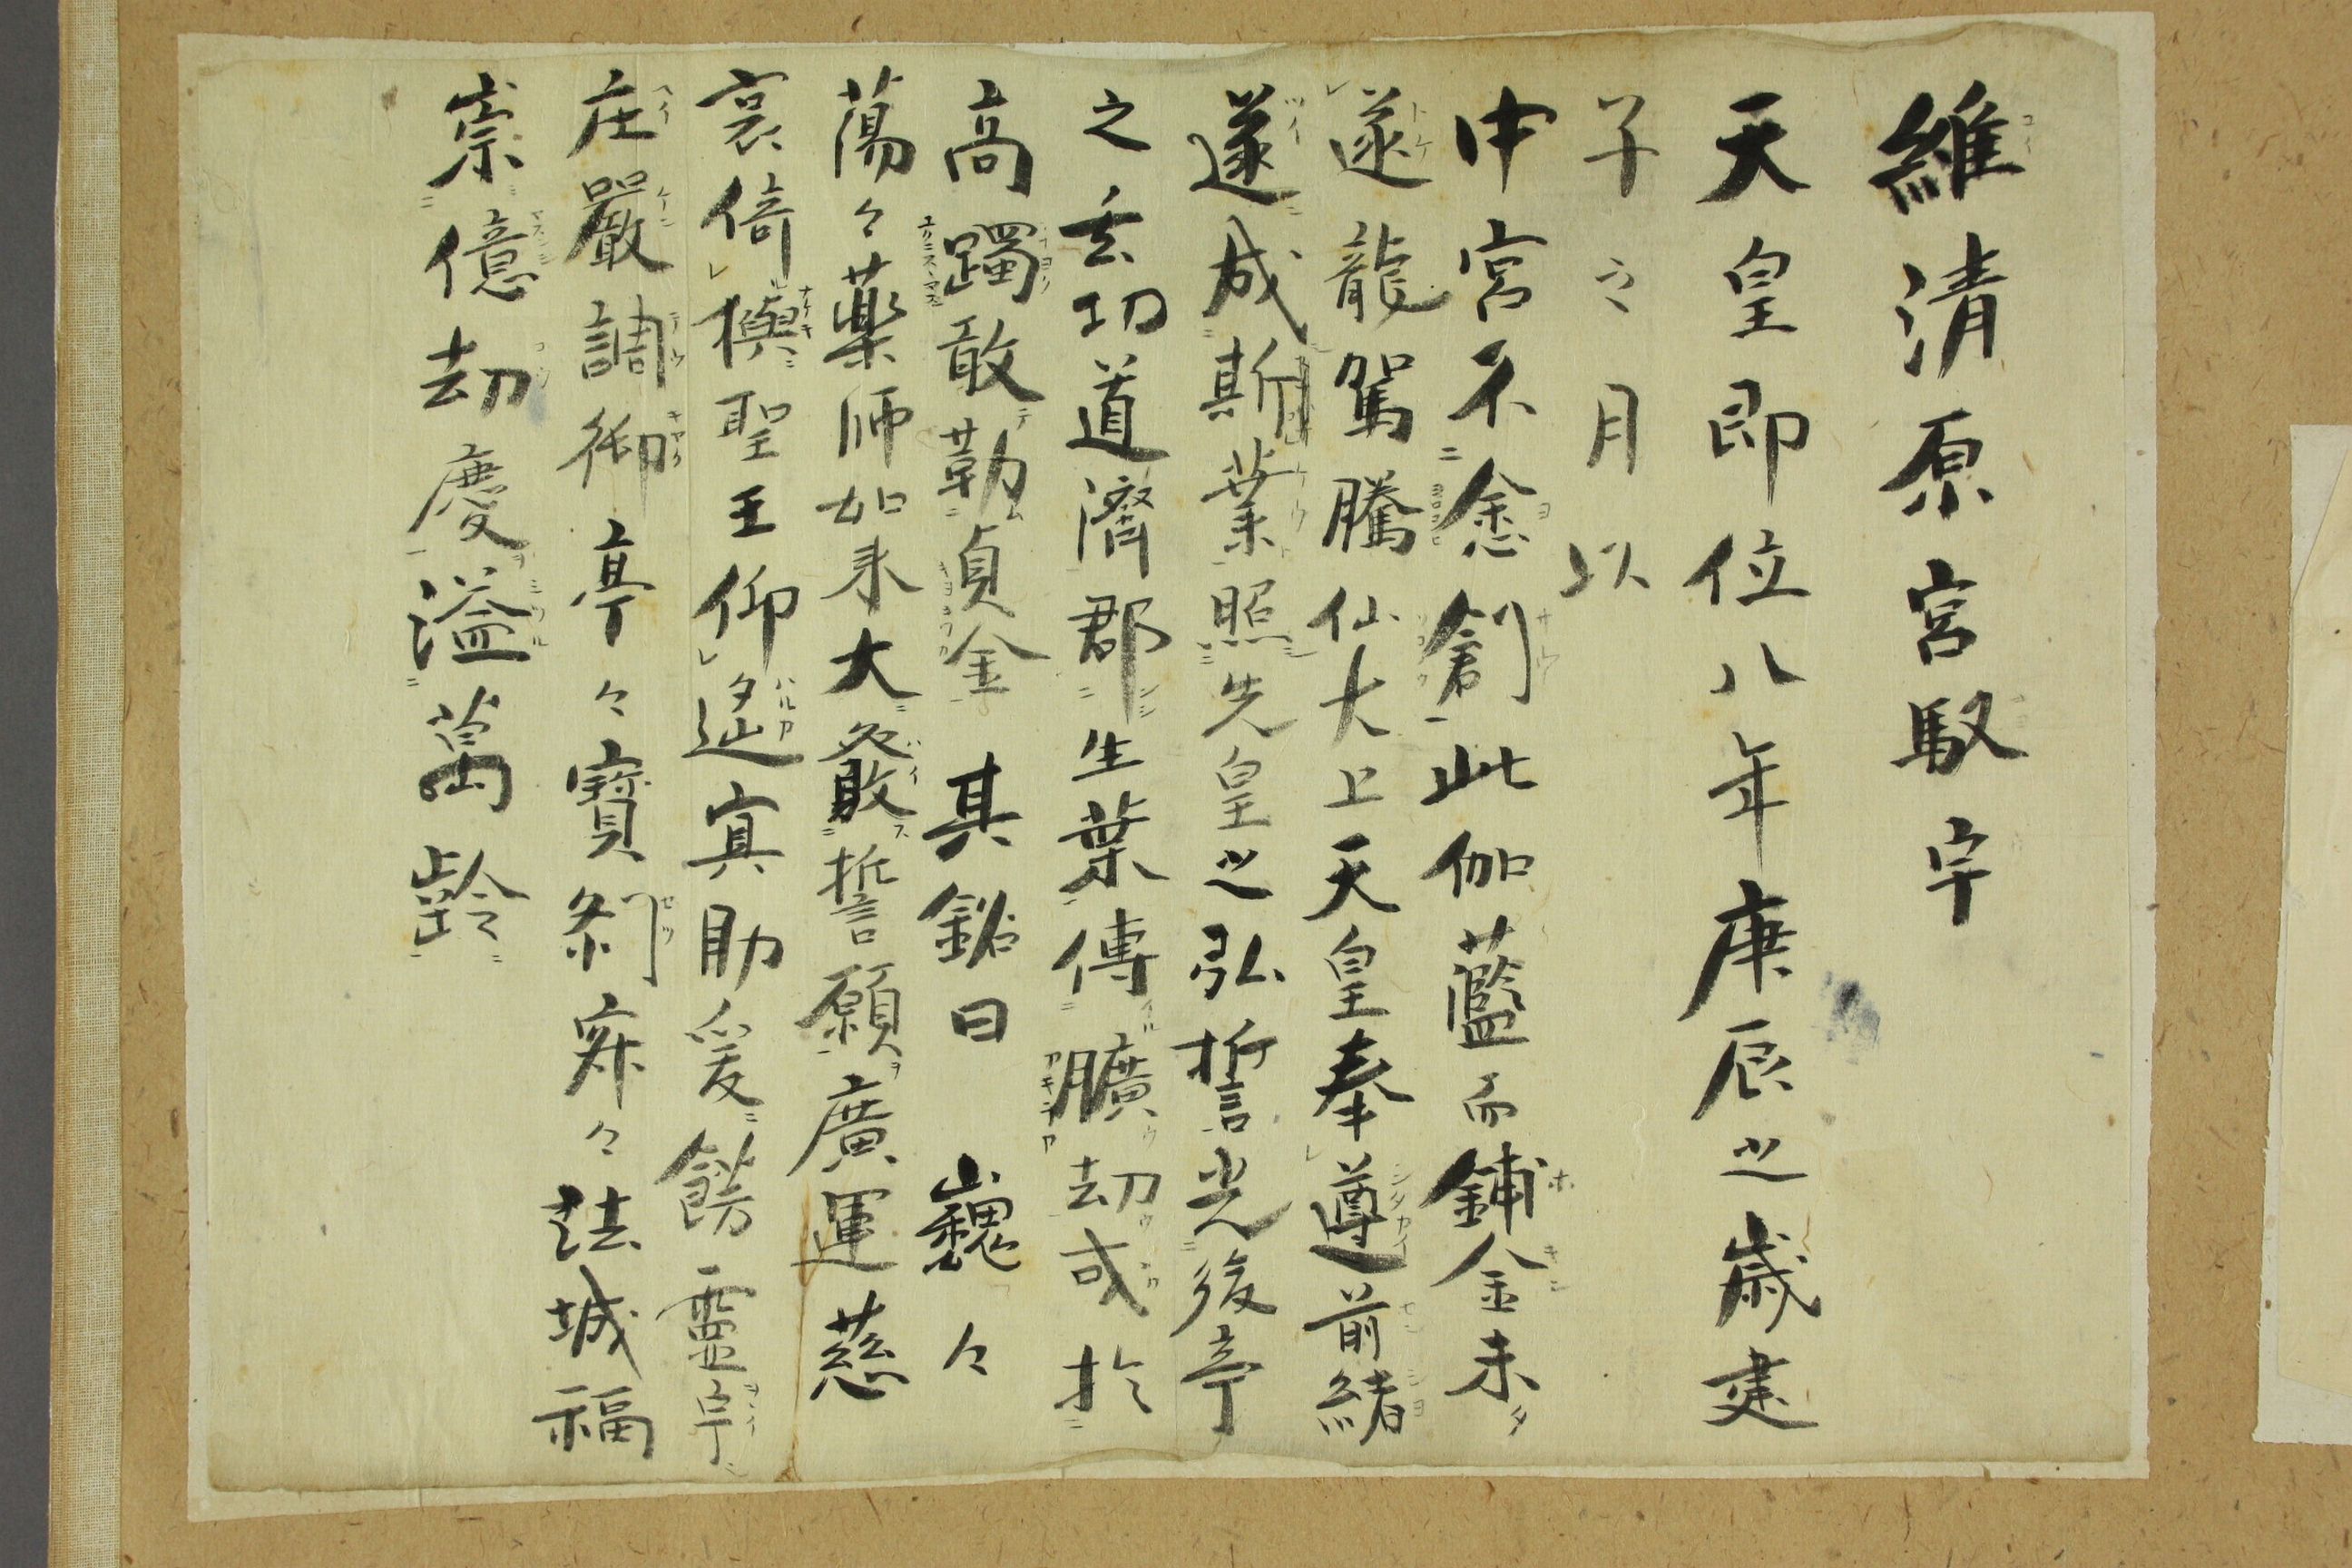 維清原宮馭宇
天皇即位八年庚辰之歳建
子之月以
中宮不悆創此伽藍而鋪金未
遂龍駕騰仙大上天皇奉遵前緒
遂成斯業照先皇之弘誓光後帝
之玄功道濟郡生葉傳曠劫或於
高躅敢勒貞金　其銘曰　巍々
蕩々薬師如来大發誓願廣運慈
哀倚㯲聖王仰延冥助爰餝靈宇
庄嚴調御亭々寶刹寂々法城福
崇億劫慶溢萬齡